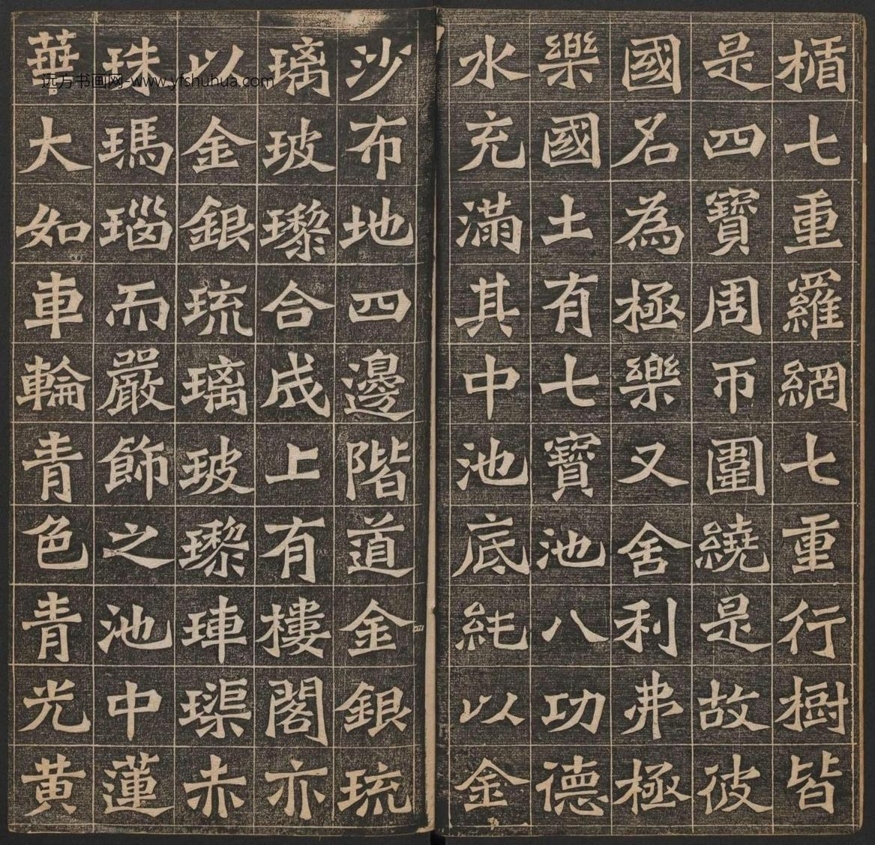 楯七重羅網七重行樹皆
是四寶周帀圍繞是故彼
國名為極樂又舍利弗極
樂國土有七寶池八功德
水充滿其中池底純以金
沙布地四邊階道金銀琉
璃玻瓈合成上有樓閣亦
以金銀琉璃玻瓈硨磲赤
珠瑪瑙而嚴飾之池中蓮
華大如車輪青色青光黃
远方书画网-www.yfshuhua.com